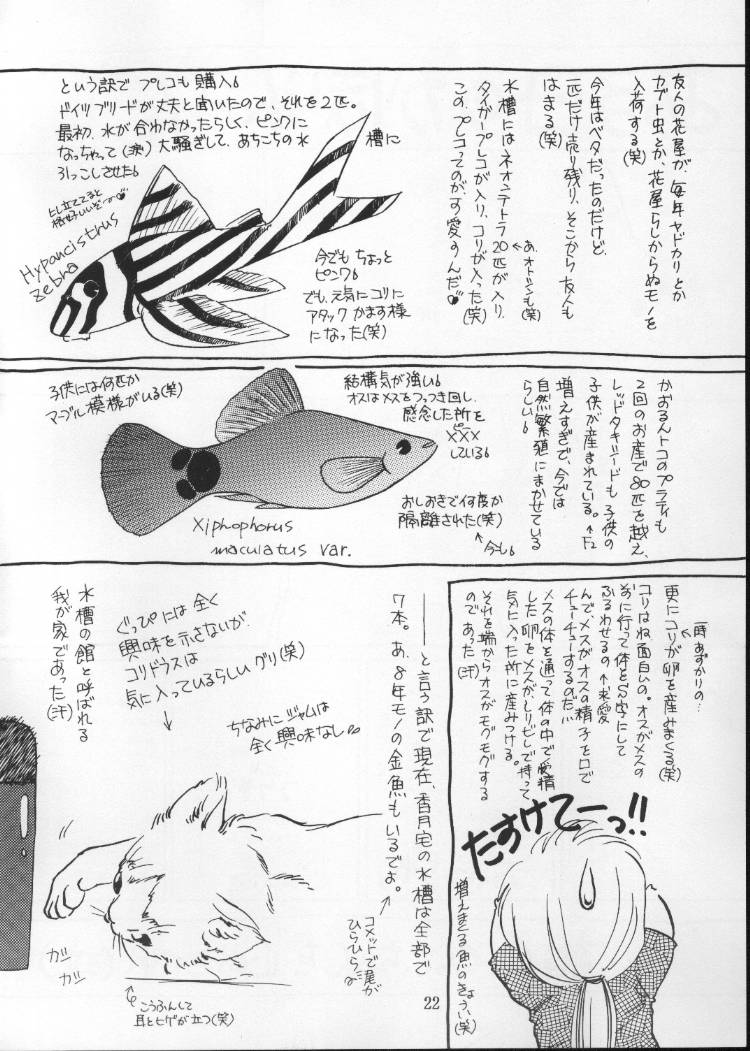 友人の花屋が、毎年ヤドカリとか
カブト虫とか、花屋らしからぬモノを
入荷する(笑)
今年はベタだったのだけど、
一匹だけ売り残り、そこから友人も
はまる(笑)
水槽にはネオンテトラ20匹が入り、
あ、オトシンも(笑)
タイガープレコが入り、コリが入った(笑)
この、プレコってのがす愛すんだ
という訳で プレコも購入。
ドイツブリードが丈夫と聞いたので、それを2匹。
最初、水が合わなかったらしく、ピンクに
なっちゃって(涙)大騒ぎして、あちこちの水槽に
引っこしさせた。
ヒレ立ててると
格好いいぞ
Hypancistrus
zebra
今でもちょっと
ピンク。
でも、元気にコリに
アタックかます様
になった(笑)
かおるんトコのプラティも
2回のお産で80匹を越え、
レッドタキシードも子供の
子供が産まれている。
↑F2
増えすぎで、今では
自然繁殖にまかせている
らしい。
結構気が強い。
オスはメスをつっつき回し、
感念した所を
ピー
×××
している。
おしおきで何度か
隔離された(笑)
↑今も。
子供には何匹か
マーブル模様がいる(笑)
Xiphophorus
maculatus var.
一時あずかりの…
更にコリが卵を産みまくる(笑)
コリはね面白いの。オスがメスの
前に行って体をS字にして
ふるわせるの ↑求愛
んで、メスがオスの精子を口で
チューチューするのだ!!
メスの体を通って体の中で受精
した卵をメスがヒレで持って
気に入った所に産みつける。
それを端からオスがモグモグする
のであった(汗)
たすけてーっ!!
増えまくる魚のきょうい(笑)
――と言う訳で現在、香月宅の水槽は全部で
7本。あ、8年モノの金魚もいるでよ。
コメットで尾が
ひらひら
ぐっぴには全く
興味を示さないが
コリドラスは
気に入っているらしいグリ(笑)
ちなみにジャムは
全く興味なし
水槽の館と呼ばれる
我が家であった(汗)
ガシ
ガシ
こうふんして
耳とヒゲが立つ(笑)
22